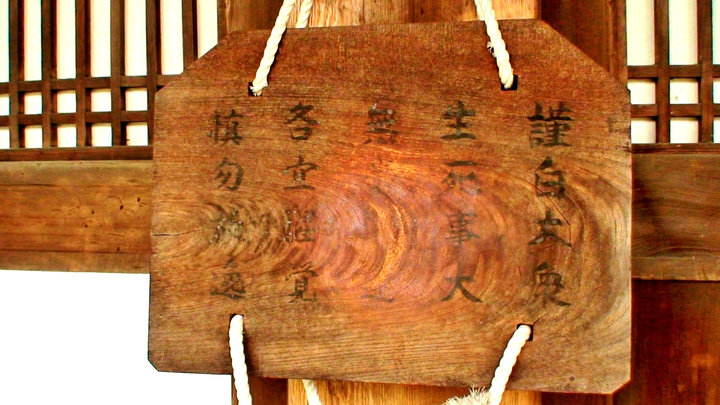 謹白大衆
生死事大
無
各宜醒覚
慎勿逸